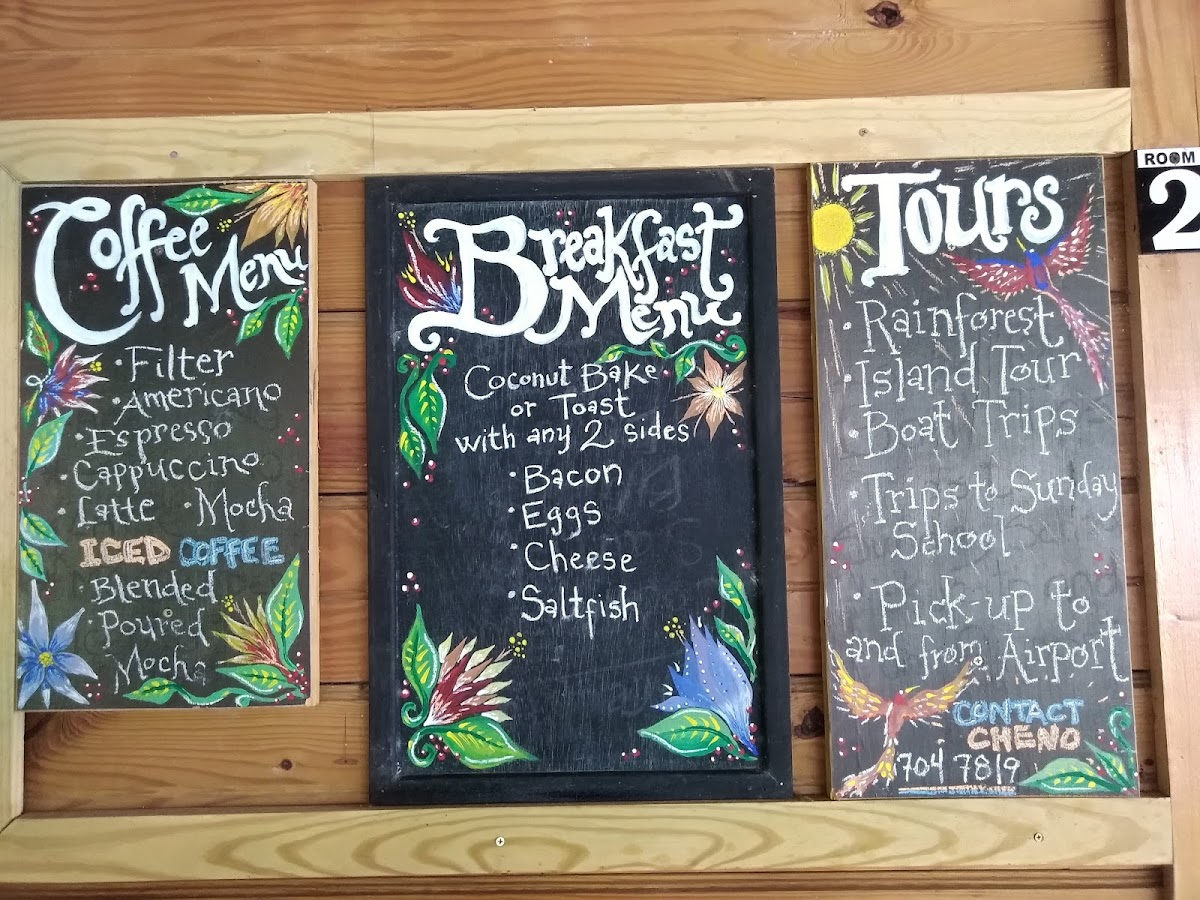 Coffee
Menu
• Filter
• Americano
• Espresso
• Cappuccino
• Latte • Mocha
ICED COFFEE
• Blended
• Poured
Mocha
Breakfast
Menu
Coconut Bake
or Toast
with any 2 sides
• Bacon
• Eggs
• Cheese
• Saltfish
Tours
• Rainforest
• Island Tour
• Boat Trips
• Trips to Sunday
School
• Pick-up to
and from Airport
CONTACT
CHENO
704 7819
ROOM
2